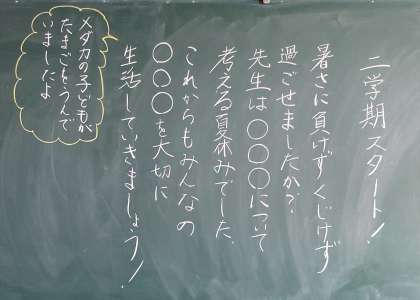 二学期スタート！
暑さに負けずくじけず
過ごせましたか？
先生は○○○について
考える夏休みでした。
これからもみんなの
○○○を大切に
生活していきましょう！
メダカの子どもが
たまごをうんで
いましたよ